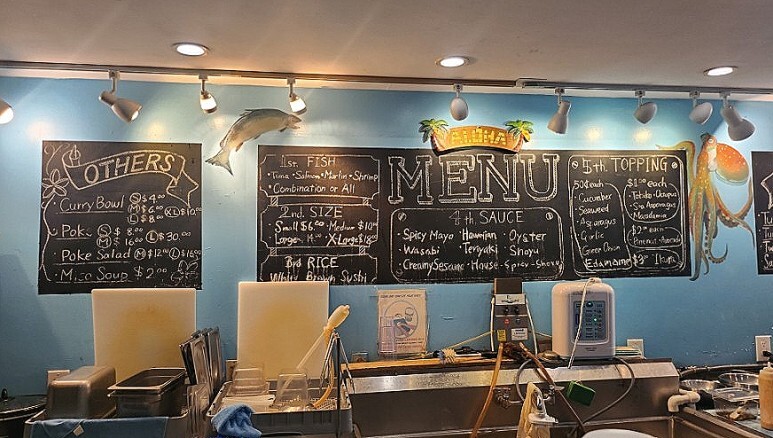 OTHERS
Curry Bowl S $4.00
M $6.00 XL $10.00
L $8.00
Poke S $8.00
M $16.00 L $30.00
Poke Salad M $12.00 L $16.00
Miso Soup $2.00
1st. FISH
Tuna Salmon Marlin Shrimp
Combination or All
2nd. SIZE
Small $6.00 Medium $10.00
Large 14.00 X-Large $18.00
3rd RICE
White Brown Sushi
ALOHA
MENU
4th SAUCE
Spicy Mayo Hawaiian Oyster
Wasabi Teriyaki Shoyu
Creamy Sesame House Spicy-Shoyu
5th. TOPPING
50¢ each
Cucumber
Seaweed
Asparagus
Garlic
Green Onion
Edamame
$1.00 each
Tobiko Octopus
Sea Asparagus
Macadamia
$2.00 each
Avocado
Ikura